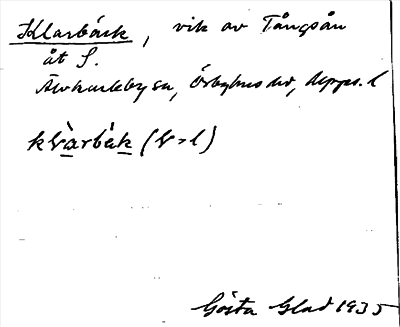 Klarbäck, vik av Tångsån
åt S.
Älvkarleby sn, Örbyhus hd, Upps. l
kVàrbäk (V=l)
Gösta Glad 1935